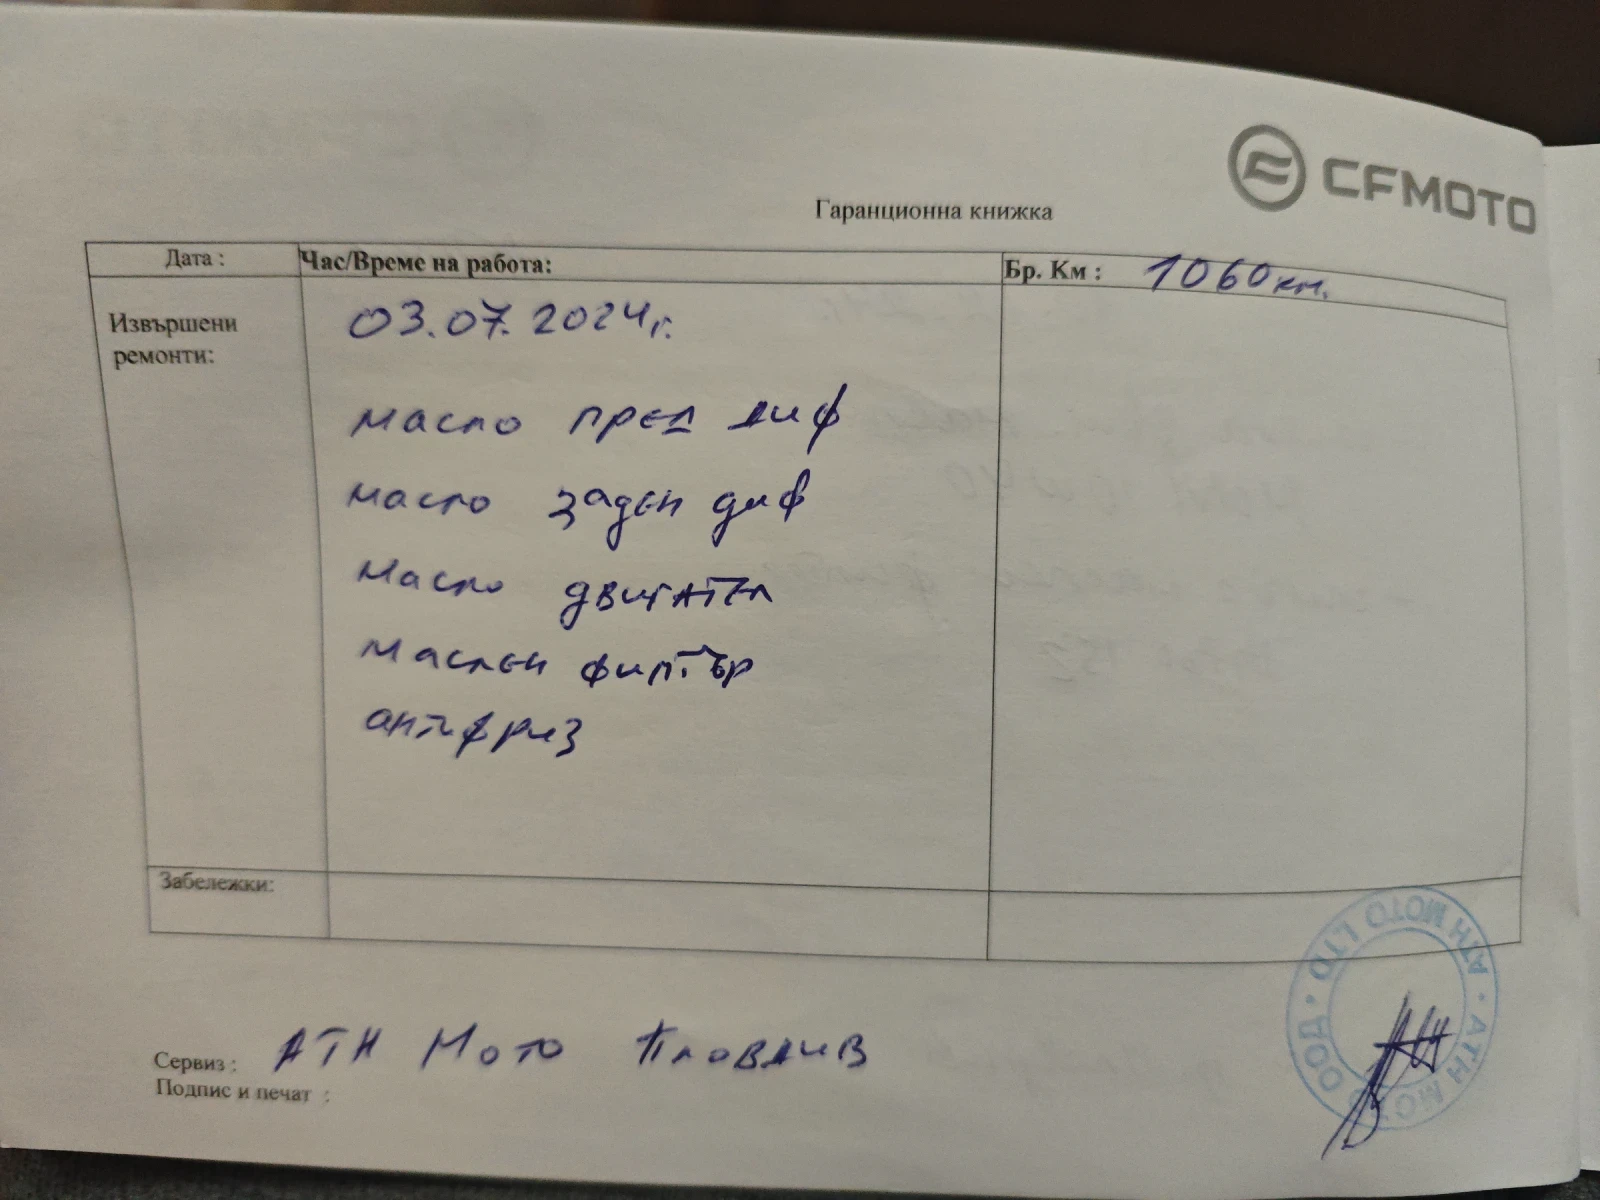 CFMOTO
Гаранционна книжка
Дата : Час/Време на работа: Бр. Км : 1060км.
Извършени ремонти:
03.07.2024г.
масло пред диф
масло заден диф
масло двигател
маслен филтър
антифриз
Забележки:
Сервиз : АТН Мото Пловдив
Подпис и печат :
АТН МОТО ООД · ATH MOTO LTD ·